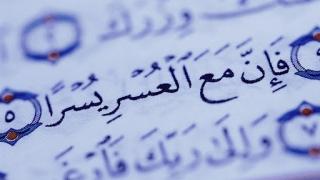 وِزْرَكَ
فَإِنَّ مَعَ ٱلْعُسْرِ يُسْرًا ٥
وَإِلَىٰ رَبِّكَ فَٱرْغَب